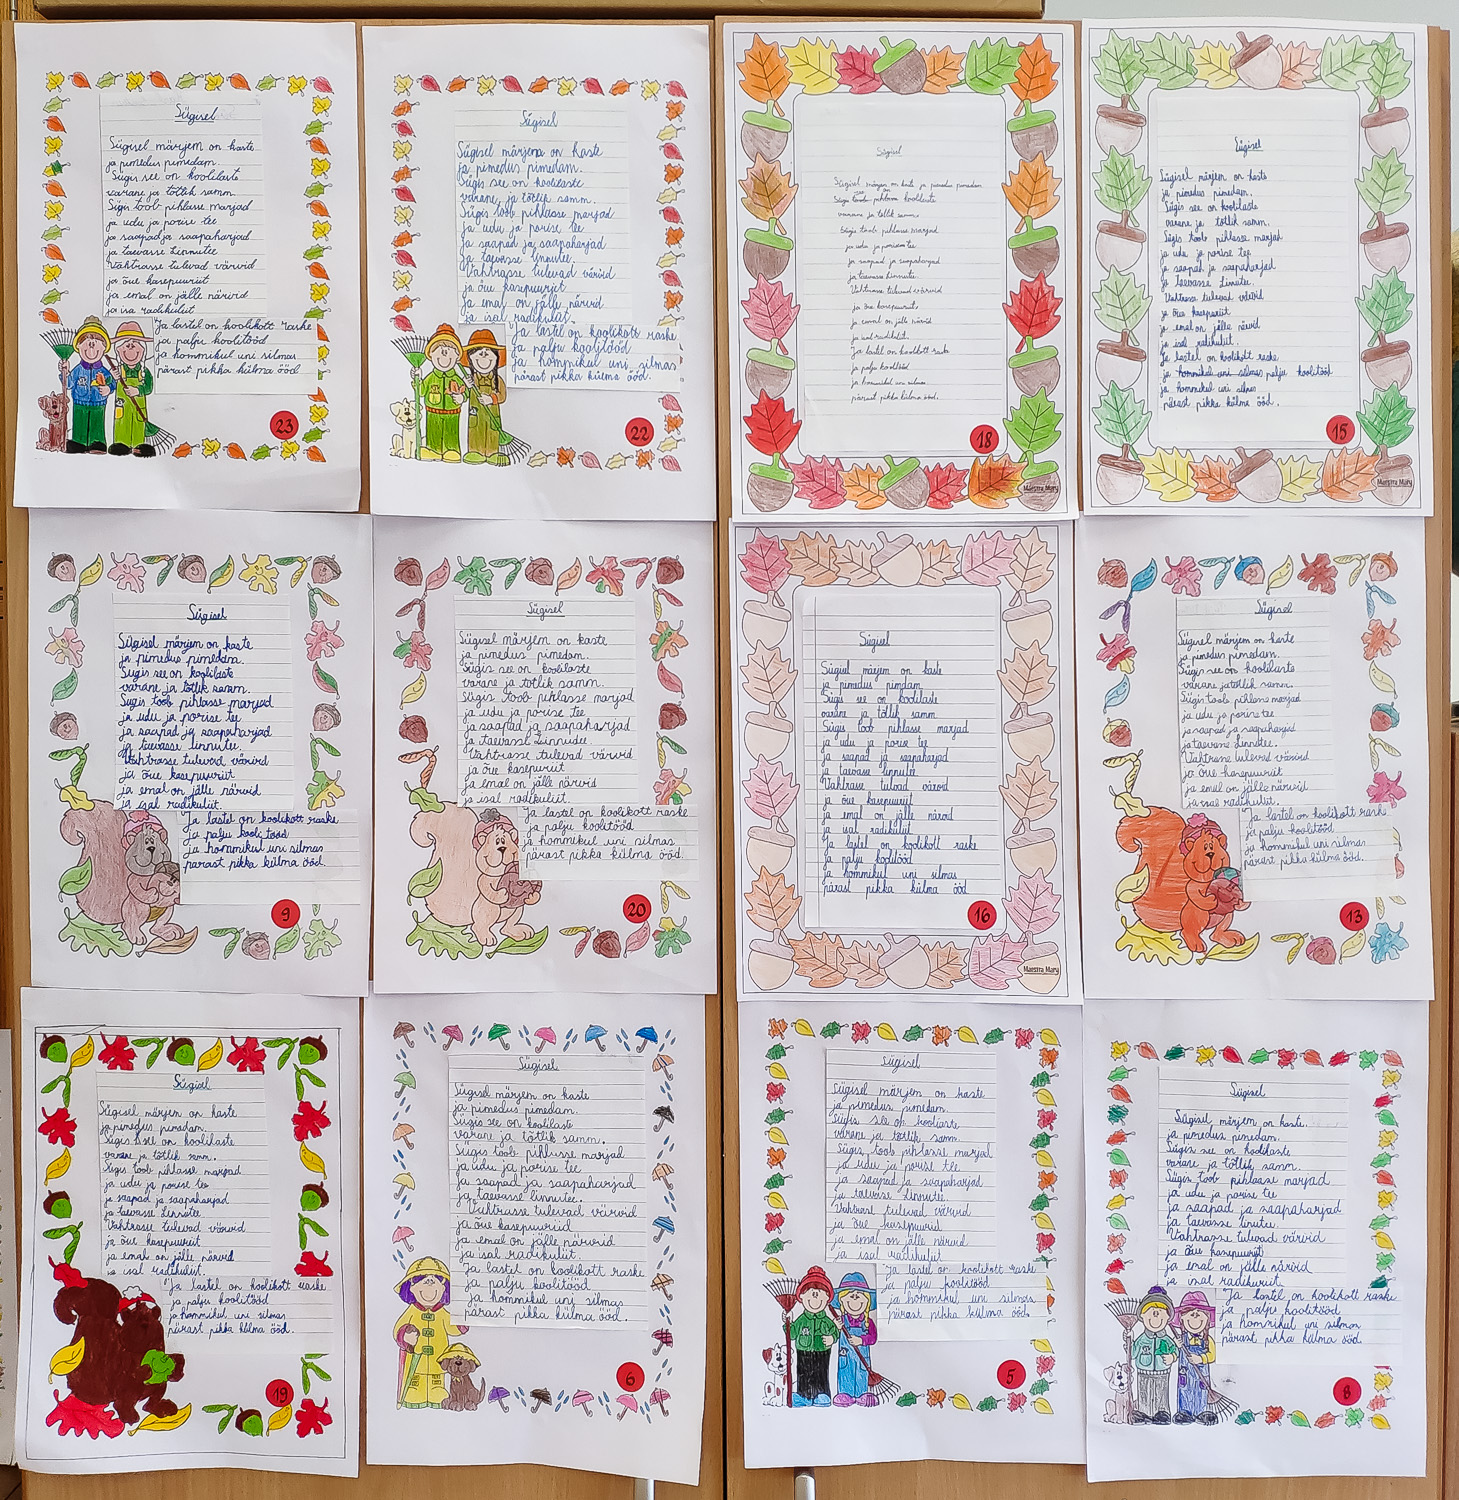 Sügisel
Sügisel märjem on kaste
ja pimedus pimedam.
Sügis see on koolilaste
varane ja tõtlik samm.
Sügis toob pihlasse marjad
ja udu ja porise tee
ja saapad ja saapaharjad
ja taevasse linnutee
Vahtrasse tulevad värvid
ja õue kasepuuriit
ja emal on jälle närvid
ja isa radikuliit
Ja lastel on koolikott raske
ja palju koolitööd
ja hommikul uni silmas
pärast pikka külma ööd.
23
Sügisel
Sügisel märjem on kaste
ja pimedus pimedam.
Sügis see on koolilaste
varane ja tõtlik samm.
Sügis toob pihlasse marjad
ja udu ja porise tee
ja saapad ja saapaharjad
ja taevasse linnutee.
Vahtrasse tulevad värvid
ja õue kasepuuriit
ja emal on jälle närvid
ja isal radikuliit.
Ja lastel on koolikott raske
ja palju koolitööd
ja hommikul uni silmas
pärast pikka külma ööd.
22
Sügisel
Sügisel märjem on kaste ja pimedus pimedam
Sügis toob pihlasse koolilaste
varane ja tõtlik samm.
Sügis toob pihlasse marjad
ja udu ja porisem tee
ja saapad ja saapaharjad
ja taevasse linnutee.
Vahtrasse tulevad värvid
ja õue kasepuuriit.
ja emal on jälle närvid
ja isal radikuliit.
Ja lastel on koolikott raske
ja palju koolitööd
ja hommikul uni silmas
pärast pikka külma ööd.
18
Maestra Mary
Sügisel
Sügisel märjem on kaste
ja pimedus pimedam.
Sügis see on koolilaste
varane ja tõtlik samm.
Sügis toob pihlasse marjad
ja udu ja porise tee
ja saapad ja saapaharjad
ja taevasse linnutee.
Vahtrasse tulevad värvid
ja õue kasepuuriit
ja emal on jälle närvid
ja isal radikuliit.
Ja lastel on koolikott raske
ja hommikul uni silmas palju koolitööd
ja hommikul uni silmas
pärast pikka külma ööd.
15
Maestra Mary
Sügisel
Sügisel märjem on kaste
ja pimedus pimedam.
Sügis see on koolilaste
varane ja tõtlik samm.
Sügis toob pihlasse marjad
ja udu ja porise tee
ja saapad ja saapaharjad
ja taevasse linnutee.
Vahtrasse tulevad värvid
ja õue kasepuuriit
ja emal on jälle närvid
ja isal radikuliit.
Ja lastel on koolikott raske
ja palju koolitööd
ja hommikul uni silmas
pärast pikka külma ööd.
9
Sügisel
Sügisel märjem on kaste
ja pimedus pimedam.
Sügis see on koolilaste
varane ja tõtlik samm.
Sügis toob pihlasse marjad
ja udu ja porise tee
ja saapad ja saapaharjad
ja taevasse linnutee.
Vahtrasse tulevad värvid
ja õue kasepuuriit
ja emal on jälle närvid
ja isal radikuliit.
Ja lastel on koolikott raske
ja palju koolitööd
ja hommikul uni silmas
pärast pikka külma ööd.
20
Sügisel
Sügisel märjem on kaste
ja pimedus pimdam
Sügis see on koolilaste
varane ja tõtlik samm
Sügis toob pihlasse marjad
ja udu ja porise tee
ja saapad ja saapaharjad
ja taevasse linnutee
Vahtrasse tulevad värvid
ja õue kasepuuriit
ja emal on jälle närvid
ja isal radikuliit
Ja lastel on koolikott raske
ja palju koolitööd
ja hommikul uni silmas
pärast pikka külma ööd
16
Maestra Mary
Sügisel
Sügisel märjem on kaste
ja pimedus pimedam.
Sügis see on koolilaste
varane ja tõtlik samm.
Sügis toob pihlasse marjad
ja udu ja porise tee
ja saapad ja saapaharjad
ja taevasse linnutee.
Vahtrasse tulevad värvid
ja õue kasepuuriit
ja emal on jälle närvid
ja isal radikuliit.
Ja lastel on koolikott raske
ja palju koolitööd
ja hommikul uni silmas
pärast pikka külma ööd.
13
Sügisel
Sügisel märjem on kaste
ja pimedus pimedam.
Sügis see on koolilaste
varane ja tõtlik samm.
Sügis toob pihlasse marjad
ja udu ja porise tee
ja saapad ja saapaharjad
ja taevasse linnutee
Vahtrasse tulevad värvid
ja õue kasepuuriit
ja emal on jälle närvid
ja isal radikuliit.
Ja lastel on koolikott raske
ja palju koolitööd
ja hommikul uni silmas
pärast pikka külma ööd.
19
Sügisel
Sügisel märjem on kaste
ja pimedus pimedam.
Sügis see on koolilaste
varane ja tõtlik samm.
Sügis toob pihlasse marjad
ja udu ja porise tee
ja saapad ja saapaharjad
ja taevasse linnutee.
Vahtrasse tulevad värvid
ja õue kasepuuriid
ja emal on jälle närvid
ja isal radikuliit.
Ja lastel on koolikott raske
ja palju koolitööd
ja hommikul uni silmas
pärast pikka külma ööd.
6
Sügisel
Sügisel märjem on kaste
ja pimedus pimedam.
Sügis see on koolilaste
varane ja tõtlik samm.
Sügis toob pihlasse marjad
ja udu ja porise tee
ja saapad ja saapaharjad
ja taevasse linnutee.
Vahtrasse tulevad värvid
ja õue kasepuuriid
ja emal on jälle närvid
ja isal radikuliit
Ja lastel on koolikott raske
ja palju koolitööd
ja hommikul uni silmas
pärast pikka külma ööd.
5
Sügisel
Sügisel märjem on kaste.
ja pimedus pimedam.
Sügis see on koolilaste
varane ja tõtlik samm.
Sügis toob pihlasse marjad
ja udu ja porise tee
ja saapad ja saapaharjad
ja taevasse linutee.
Vahtrasse tulevad värvid
ja õue kasepuuriit
ja emal on jälle närvid
ja isal radikuriit
Ja lastel on koolikott raske
ja palju koolitööd
ja hommikul uni silmas
pärast pikka külma ööd
8